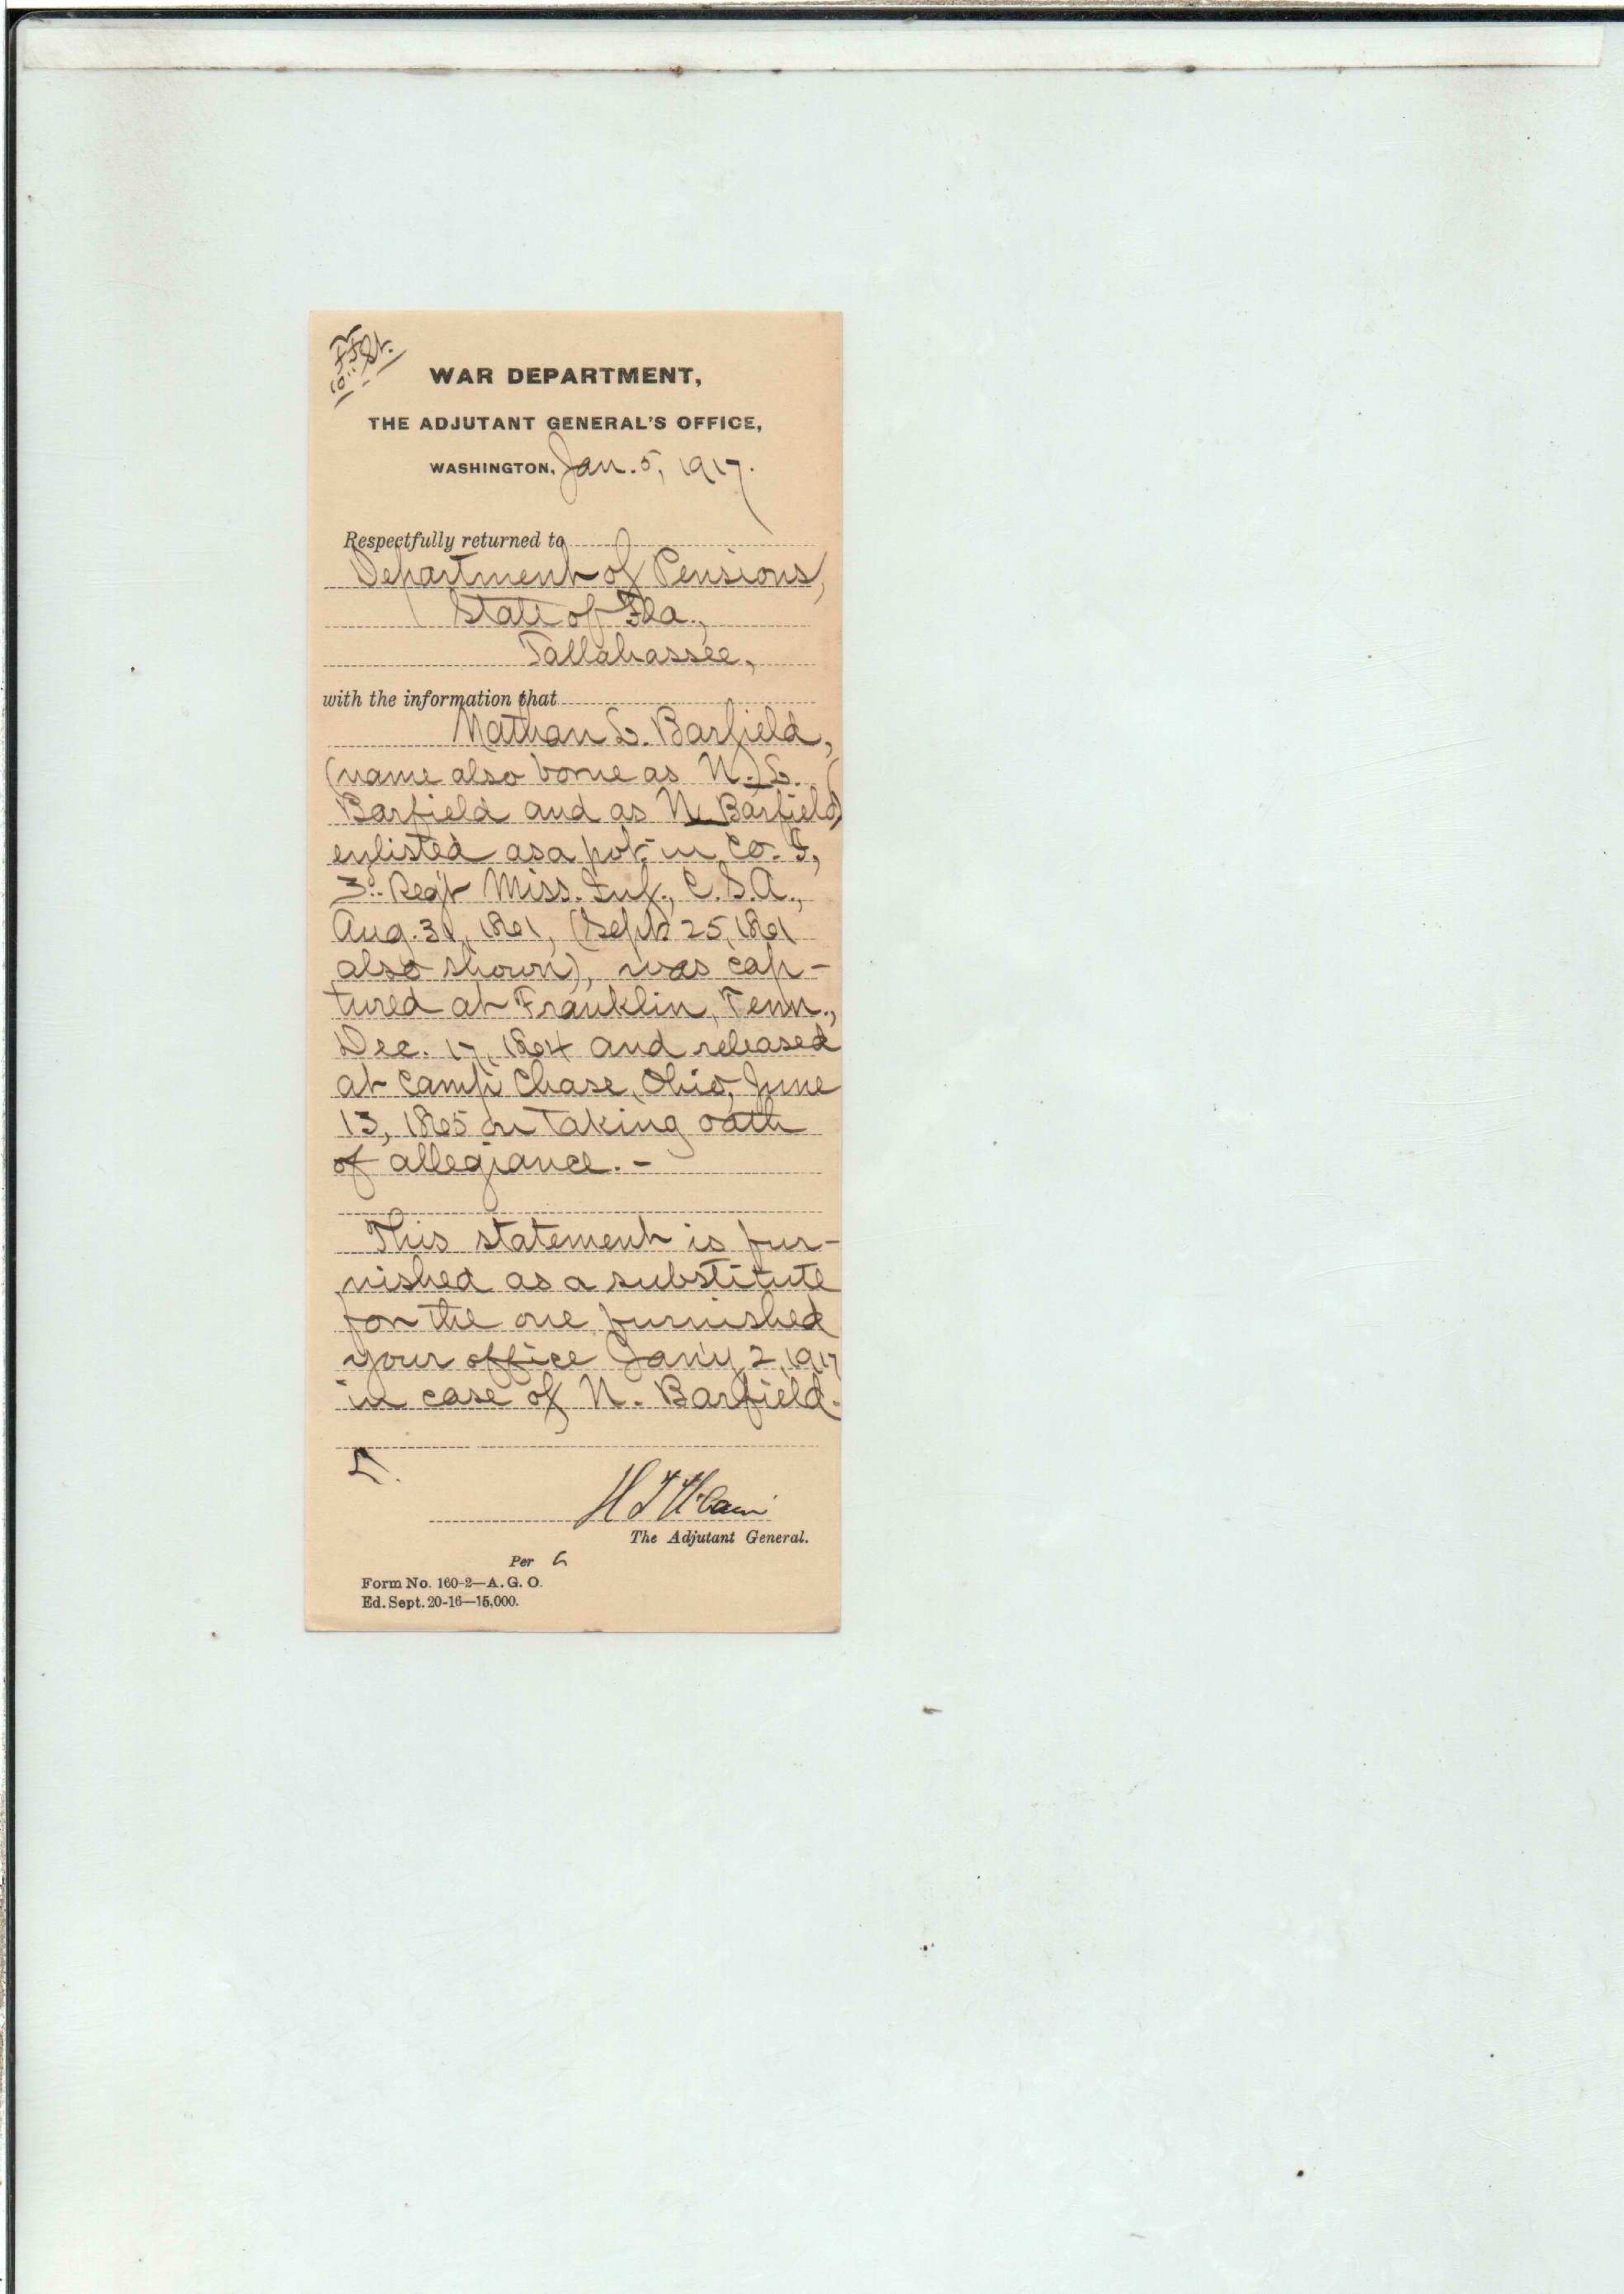 WAR DEPARTMENT,
THE ADJUTANT GENERAL'S OFFICE,
WASHINGTON, Jan. 5, 1917.
Respectfully returned to
Department of Pensions,
State of Fla.,
Tallahassee,
with the information that
Nathan S. Barfield,
(name also borne as N. S.
Barfield and as N. Barfield)
enlisted as a pvt. in Co.
3d. Reg't Miss. Inf., C.S.A.,
Aug. 31, 1861, (Sept 25, 1861
also shown), was cap-
tured at Franklin, Tenn.,
Dec. 17, 1864 and released
at Camp Chase, Ohio, June
13, 1865 on taking oath
of allegiance. -
This statement is fur-
nished as a substitute
for the one furnished
your office Jan'y 2, 1917
in case of N. Barfield.
The Adjutant General.
Per
Form No. 160-2—A. G. O.
Ed. Sept. 20-16—15,000.